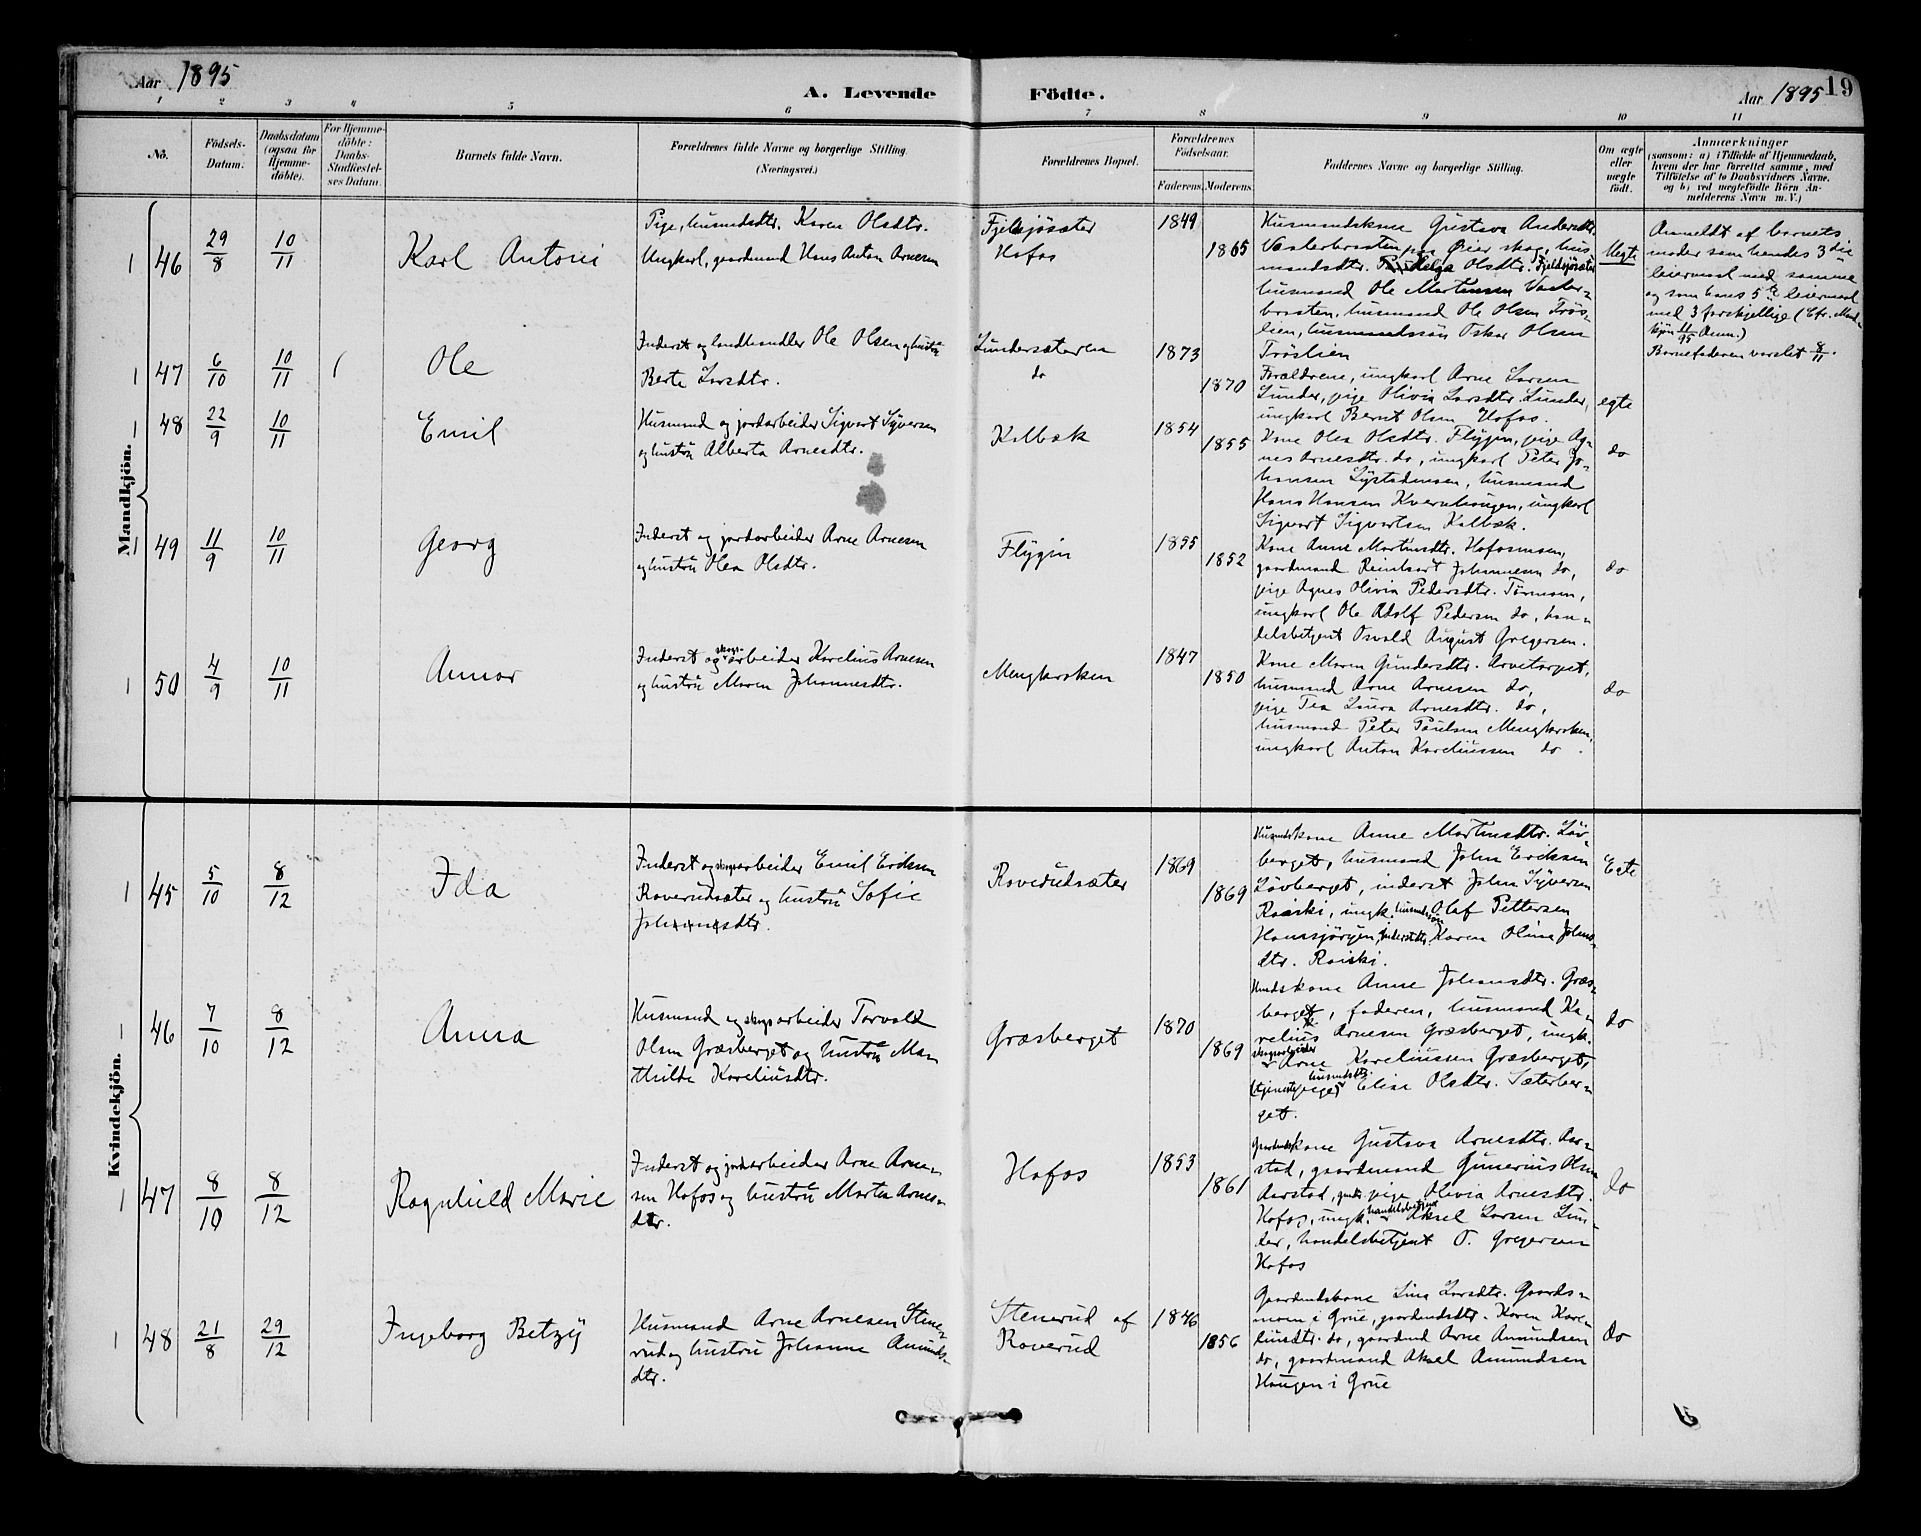 Aar 1895
A. Levende Födte.
Aar 1895
19
1 2 3 4 5 6 7 8 9 10 11
No.
Födsels-
Datum.
Daabsdatum
(ogsaa for
Hjemme-
döbte).
For Hjemme-
döbte:
Daabs-
Stadfæstel-
ses Datum.
Barnets fulde Navn.
Forældrenes fulde Navne og borgerlige Stilling.
(Næringsvei.)
Forældrenes Bopæl.
Forældrenes
Födselsaar.
Faderens. Moderens.
Faddernes Navne og borgerlige Stilling.
Om ægte
eller
uægte
födt.
Anmærkninger
(saasom: a) i Tilfælde af Hjemmedaab,
hvem der har forrettet samme, med
Tilföielse af to Daabsvidners Navne,
og b) ved uægtefödte Börn An-
melderens Navn m. V.)
Mandkjön.
1 46
29/8
10/11
Karl Antoni
Pige, husmdsdtr. Karen Olsdtr.
Ungkarl, gaardmand Hans Anton Arnesen
Fjeldsjøsæter
Hofos
1849
1865
Husmandskone Gustava Andersdtr.
Vesterbraaten, Øier skog, hus
mandsdtr. Helga Olsdtr. Fjeldsjøsæter
husmand Ole Martinsen Vester-
braaten, husmand Ole Olsen Trös-
lien, husmandssön Oskar Olsen
Tröslien
Uegte
Anmeldt af barnets
moder som hendes 3die
leiermaal med samme
og som hans 5te leiermaal
med 3 forskjellige (Cfr. Mand-
kjön 11/95 Anm.)
Barnefaderen varslet 8/11.
1 47
6/10
10/11
1
Ole
Inderst og landhandler Ole Olsen og hustru
Berte Larsdtr.
Lundersæteren
do
1873
1870
Forældrene, ungkarl Arne Larsen
Lunder, pige Olivia Larsdtr. Lunder,
ungkarl Bernt Olsen Hofos.
egte
1 48
22/9
10/11
Emil
Husmand og jordarbeider Sigvart Syversen
og hustru Alberta Arnesdtr.
Kalbæk
1854
1855
Kone Olea Olsdtr. Flygin, pige Ag-
nes Arnesdtr. do, ungkarl Peter Jo-
hansen Lystadmoen, husmand
Hans Hansen Kvernhaugen, ungkarl
Sigvart Sigvartsen Kalbæk.
do
1 49
11/9
10/11
Georg
Inderst og jordarbeider Arne Arnesen
og hustru Olea Olsdtr.
Flygin
1855
1852
Kone Anne Martinsdtr. Hofosmoen,
gaardmand Reinhart Johannesen do,
pige Agnes Olivia Pedersdtr. Tørmoen,
ungkarl Ole Adolf Pedersen do, han-
delsbetjent Osvald August Gregersen.
do
1 50
4/9
10/11
Annar
Inderst og skogs-arbeider Karelius Arnesen
og hustru Maren Johannesdtr.
Mengkroken
1847
1850
Kone Maren Gundersdtr. Arvetorpet,
husmand Arne Arnesen do,
pige Tea Laura Arnesdtr. do,
husmand Peter Paulsen Mengkroken,
ungkarl Anton Kareliussen do.
do
Kvindekjön.
1 45
5/10
8/12
Ida
Inderst og skogsarbeider Emil Eriksen
Roverudsæter og hustru Sofie
Johannesdtr.
Roverudsæter
1869
1869
Husmdskone Anne Martinsdtr. Löv-
berget, husmand John Eriksen
Lövberget, inderst Johan Syversen
Roiski, ungk. husmdssön Olaf Pettersen
Hansjörgen, inderstdtr. Karen Oline Johns-
dtr. Roiski.
Egte
1 46
7/10
8/12
Anna
Husmand og skogsarbeider Torvald
Olsen Græsberget og hustru Ma-
thilde Kareliusdtr.
Græsberget
1870
1869
Husmdskone Anne Johansdtr. Græs-
berget, faderen, husmand Ka-
relius Arnesen Græsberget, ungk.
skogsarbeider Arne Kareliussen Græsberget,
(tjenestepige) husmdsdtr. Elise Olsdtr. Sæterber-
get.
do
1 47
8/10
8/12
Ragnhild Marie
Inderst og jordarbeider Arne Arne-
sen Hofos og hustru Marta Arnes-
dtr.
Hofos
1853
1861
Gaardmdskone Gustava Arnesdtr. Aar-
stad, gaardmand Gunerius Olsen
Aarstad, pige Olivia Arnesdtr.
Hofos, ungk. handelsbetjent Aksel Larsen Lun-
der, handelsbetjent O. Gregersen
Hofos
do
1 48
21/8
29/12
Ingeborg Betzy
Husmand Arne Arnesen Stene-
rud og hustru Johanne Amunds-
dtr.
Stenerud af
Roverud
1846
1856
Gaardmdskone Lina Larsdtr. Gaards-
moen i Grue, gaardmdsdtr. Karen Kare-
liusdtr. do, gaardmd Arne Amundsen
do, gaardmand Aksel Amundsen
Haugen i Grue
do